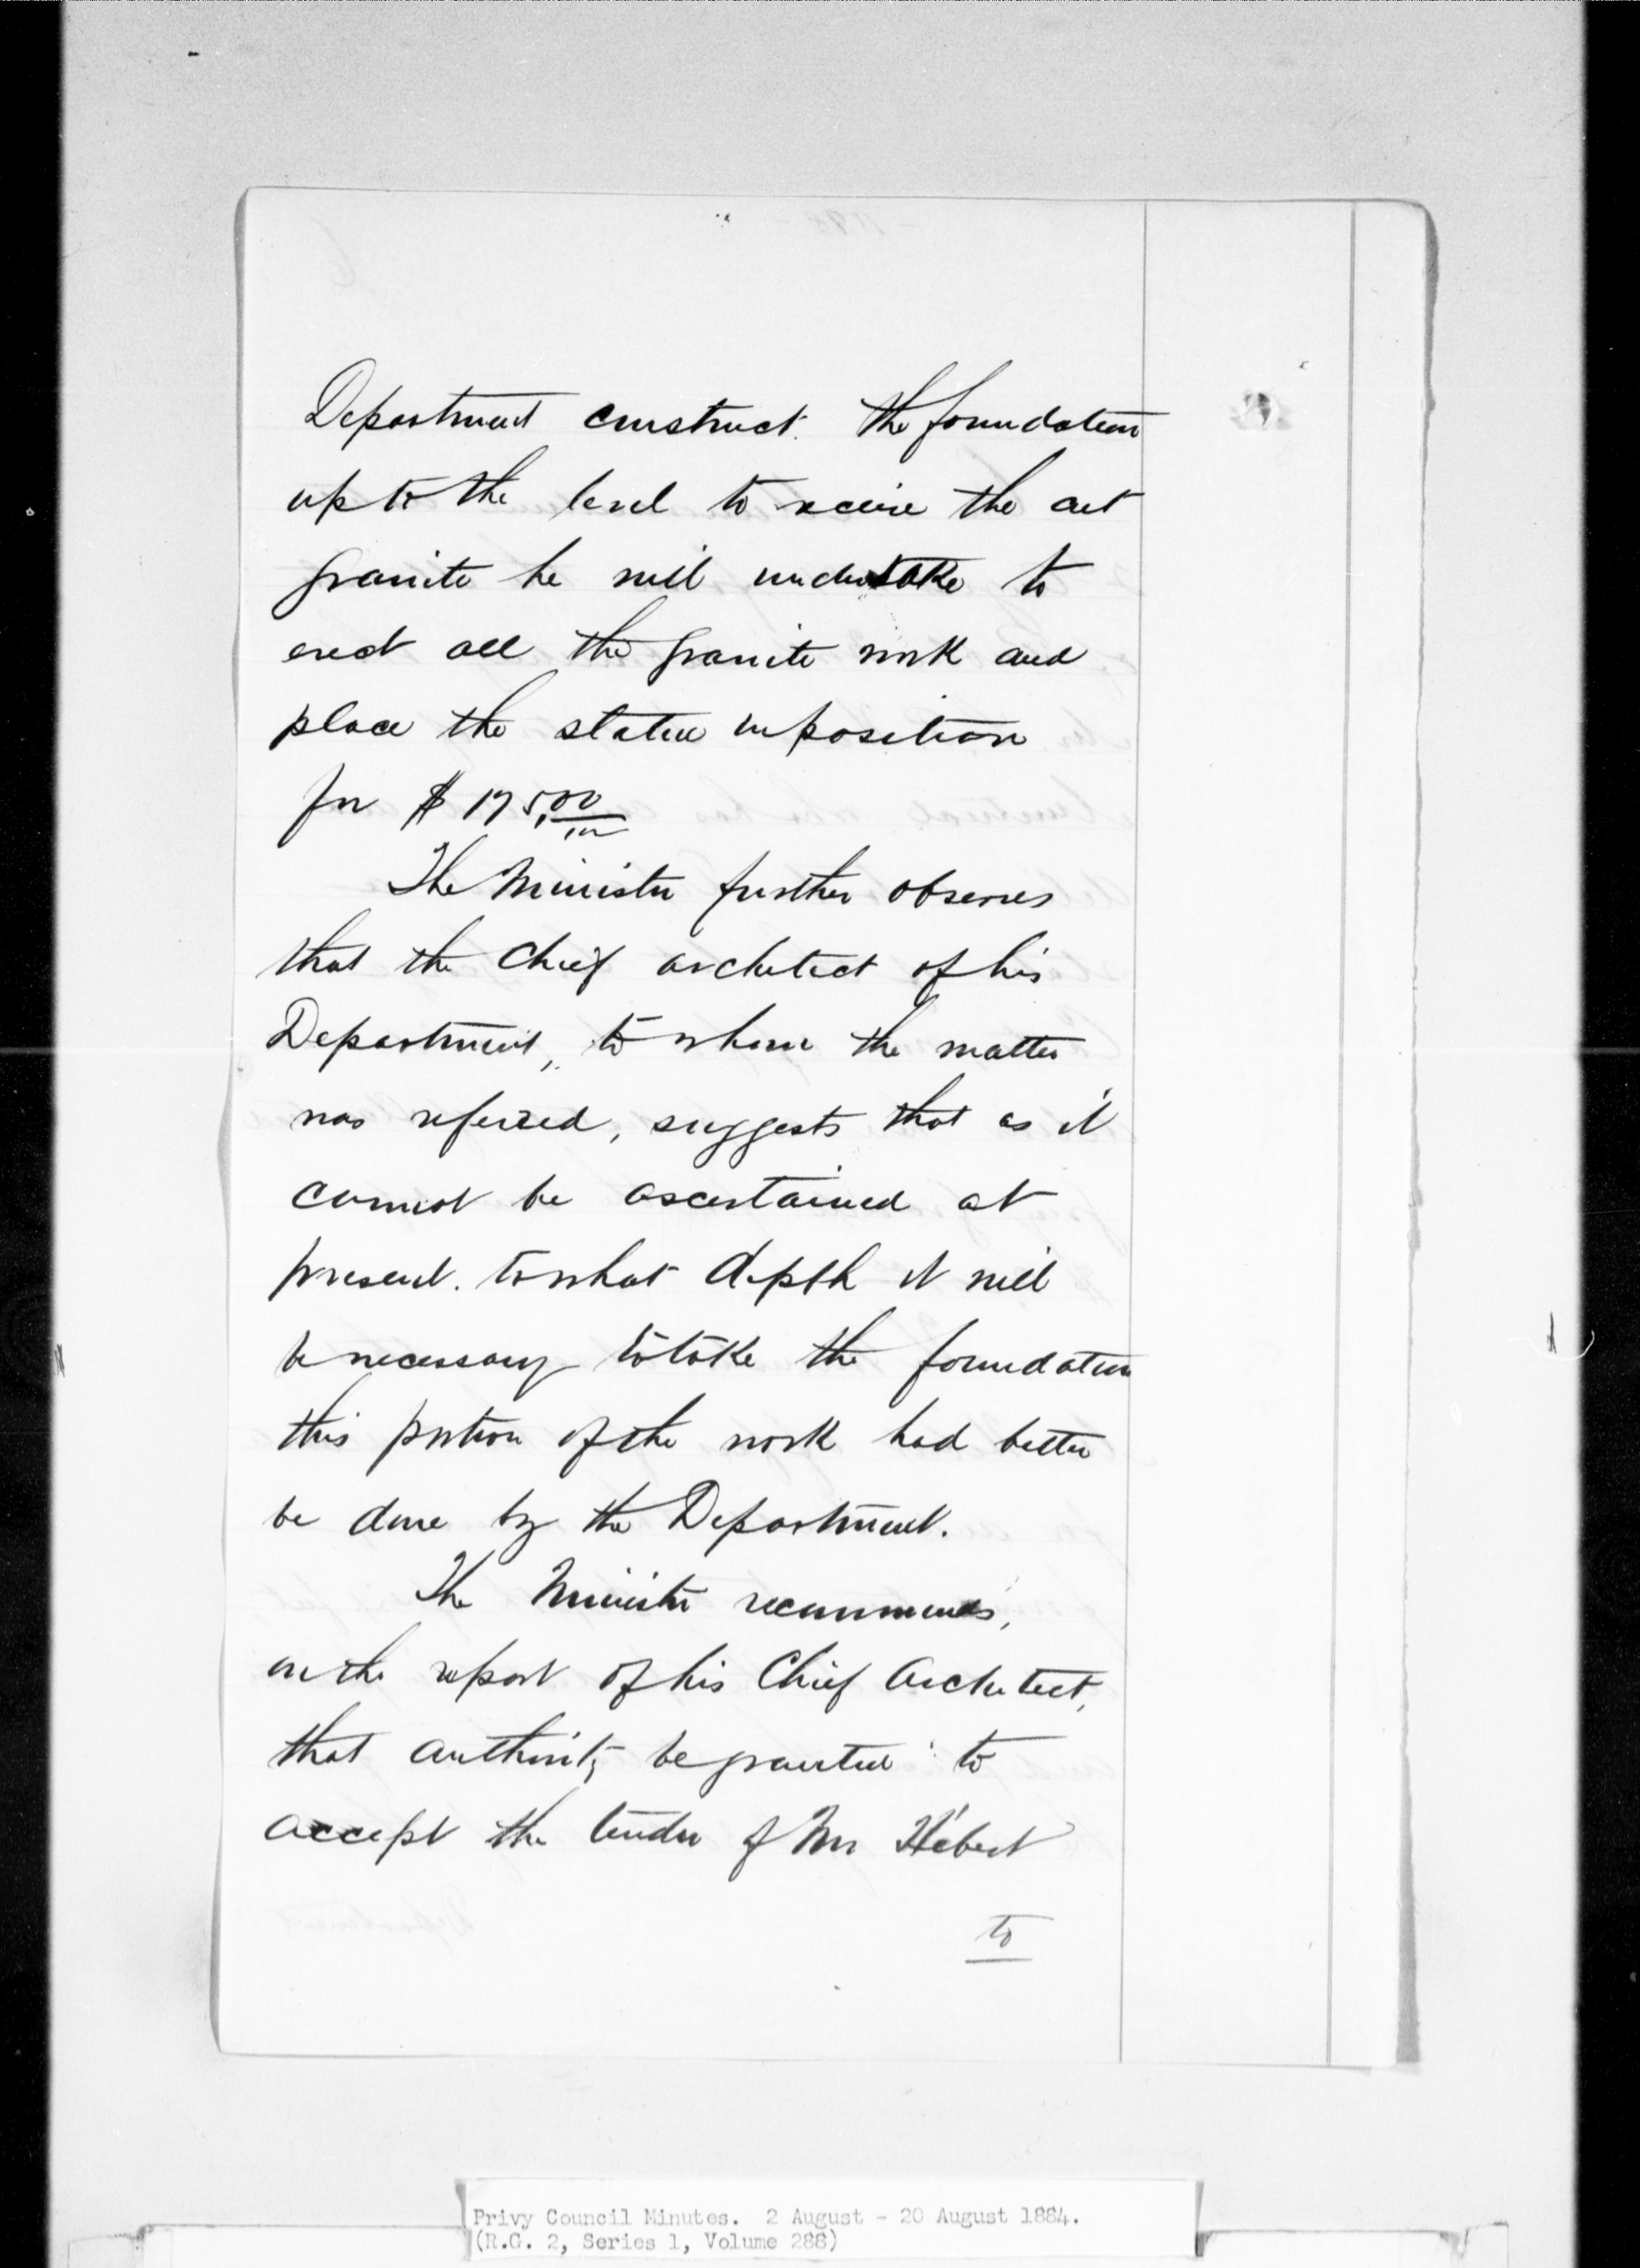 Department construct the foundation
up to the level to receive the cut
granite he will undertake to
erect all the granite work and
place the statue in position
for $175.00
The Minister further observes
that the Chief architect of his
Department, to whom the matter
was referred, suggests that as it
cannot be ascertained at
present to what depth it will
be necessary to take the foundation
this portion of the work had better
be done by the Department.
The Minister recommends,
on the report of his Chief Architect,
that authority be granted to
accept the tender of Mr Hébert
to
Privy Council Minutes. 2 August - 20 August 1884.
(R.G. 2, Series 1, Volume 288)